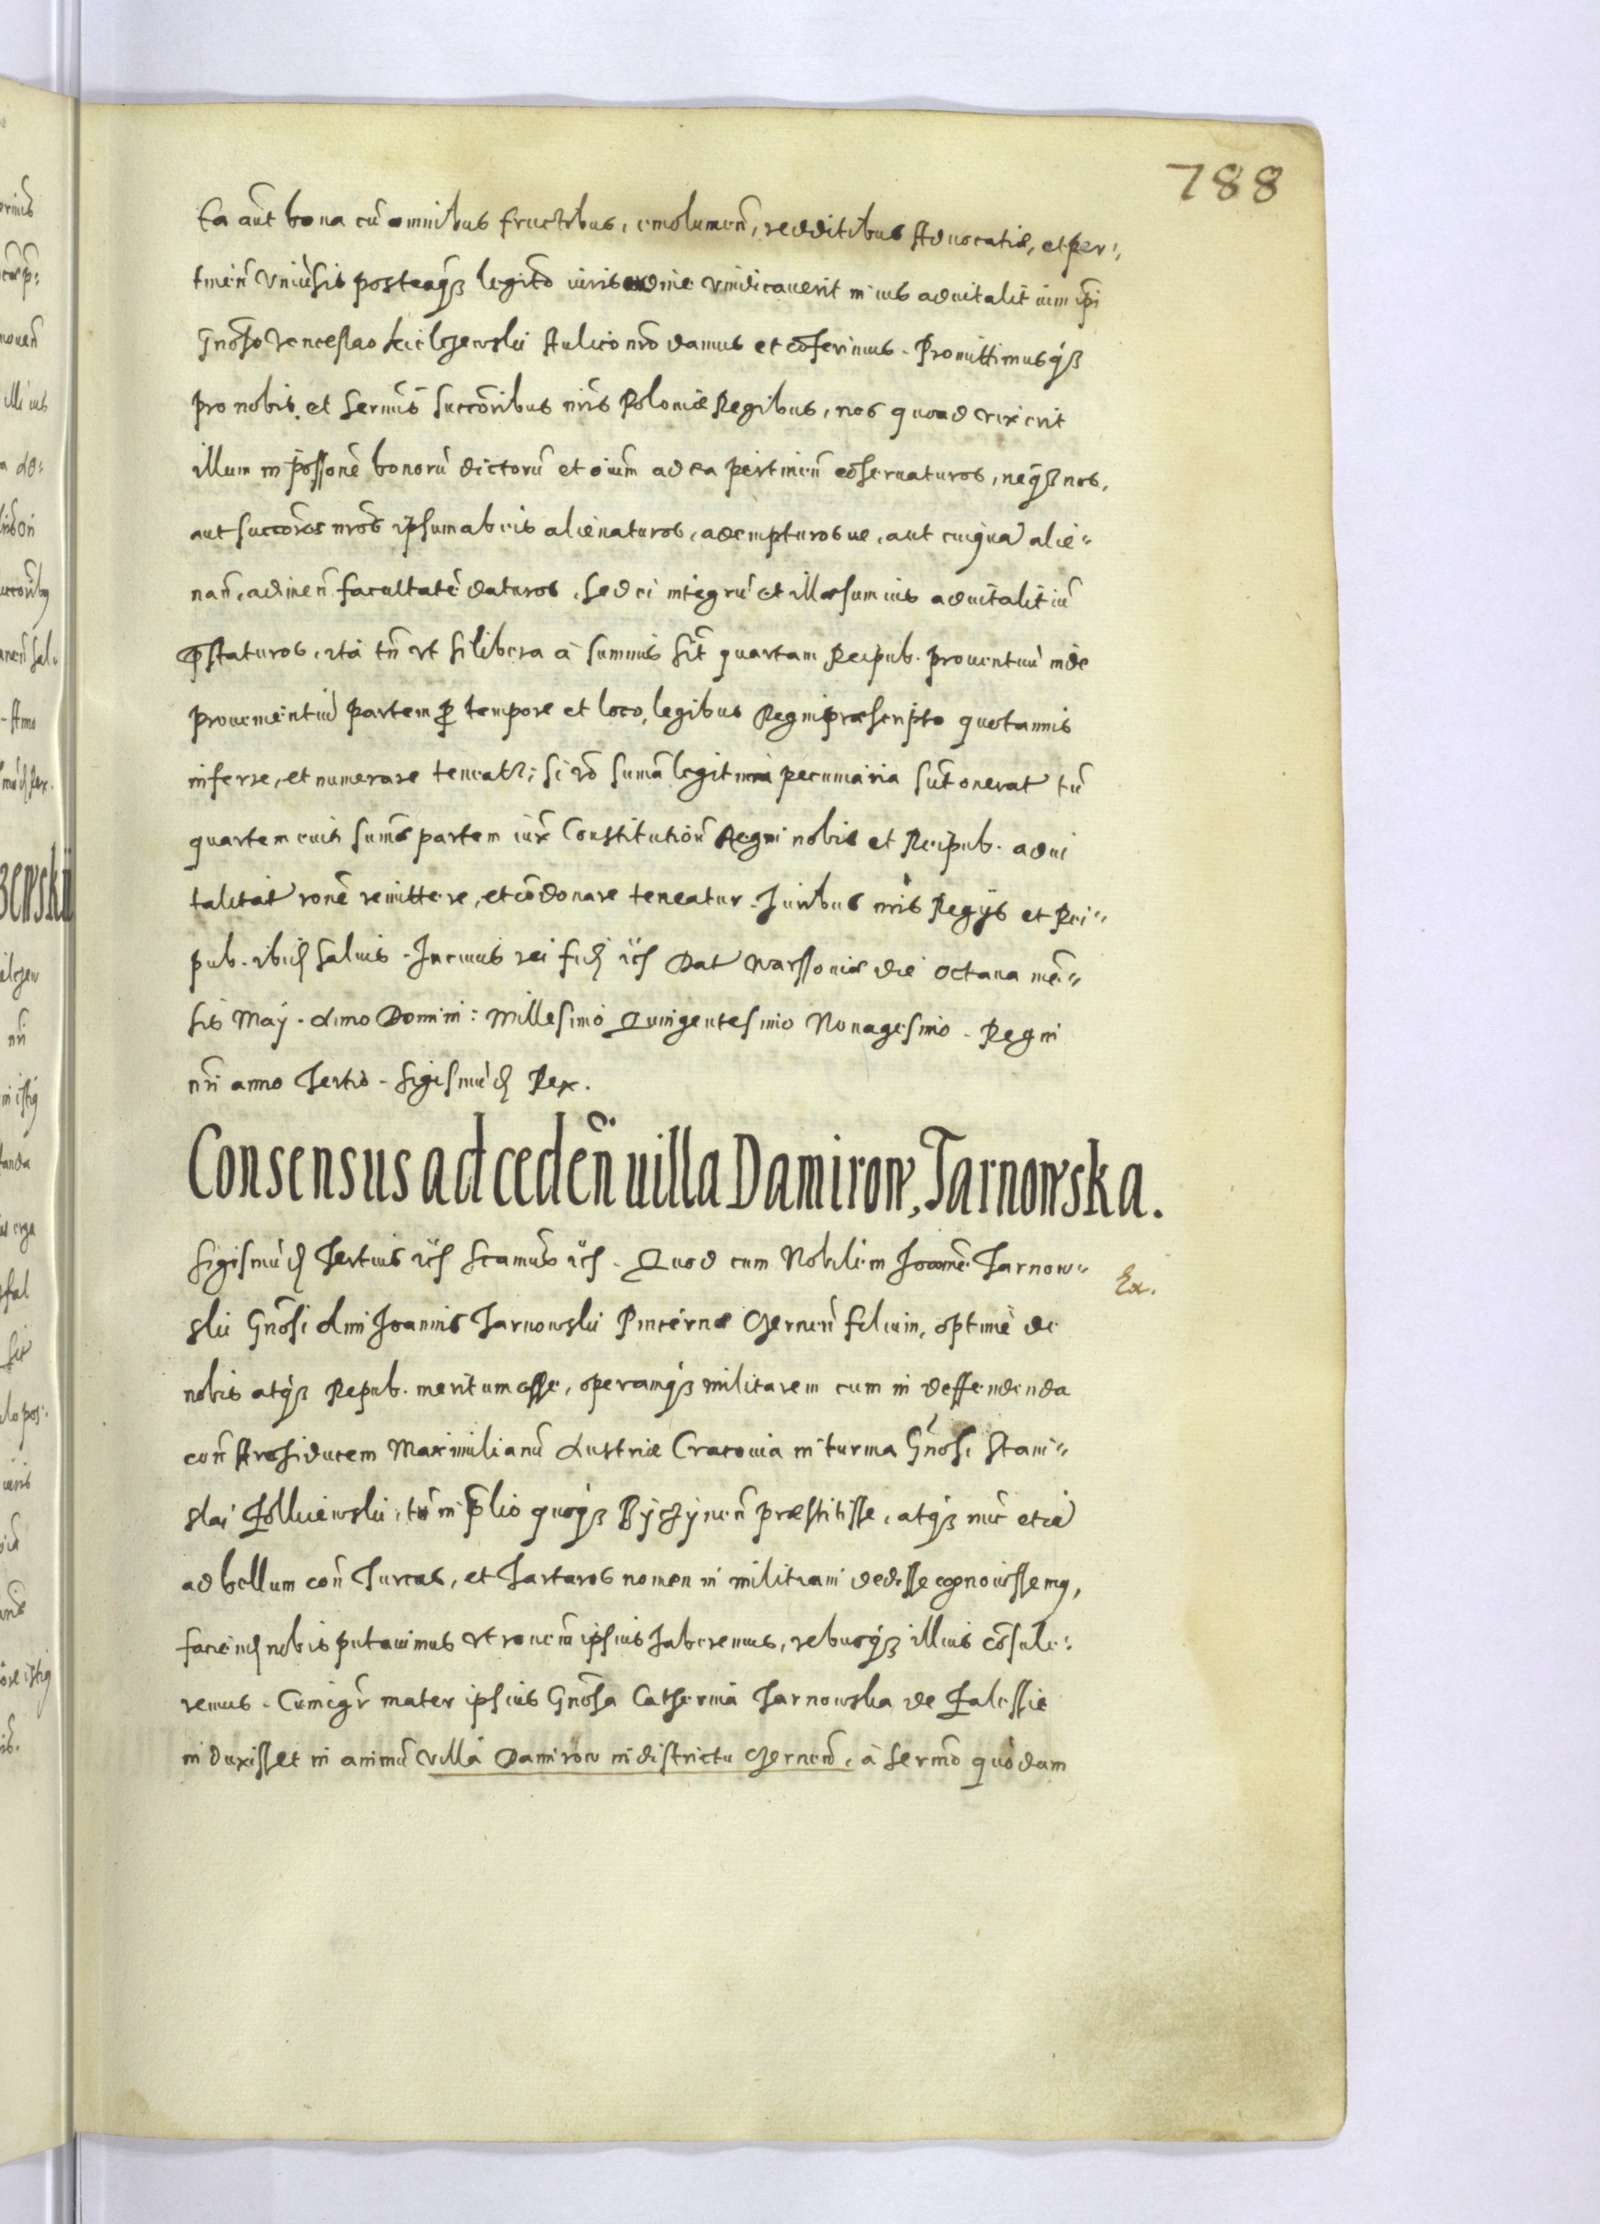 788
Ea aut bona cu omnibus fructibus, emolumen, redditibus Advocatiæ, et per-
tinen Universis posteaq3 legito iuris ordine vindicaverit in ius advitalit ium ipi
Gnoso Venceslao Kielczewskii Aulico nro damus et coferimus. Promittimusq3
pro nobis et Sermis Succoribus nris Poloniæ Regibus, nos quoad vixerit
illum in possone bonoru dictoru et oium ad ea pertinen coservaturos, neq3 nos,
aut succores nros ipsum ab eis alienaturos, adempturosve, aut cuiqua alie-
nan, adimen facultate daturos. Sed ei integru et illæsum ius advitalitiu
pstaturos, ita tn ut si libera à summis sit quartam Reipub. proventuu inde
provenientiu partem p tempore et loco, legibus Regni præscripto quotannis
inferre, et numerare teneatr; si vo suma legitima pecuniaria sut onerat tu
quartem euis sumæ partem iux Constitution Regni nobis et Reipub. advi
talitat rone remittere, et codonare teneatur. Iuribus nris Regijs et Rei-
pub. ibid salvis. In cuius rei fid etc Dat Warssoviæ die octava me-
sis Maij. Anno Domini: Millesimo Quingentesimo Nonagesimo. Regni
nri anno Tertio. Sigismud Rex.
Consensus ad ceden villa Damirow, Tarnowska.
Sigismud Tertius etc Scamus etc. Quod cum Nobilem Joanne Tarnow-
skii Gnosi dni Joannis Tarnowskii Pincernæ Czernen filium, optime de
nobis atq3 Repub. meritum esse, operamq3 militarem cum in deffendenda
con Archiducem Maximilianu Austriæ Cracovia in turma Gnosi Stani-
slai Zolkiewskii, tu in plio quoq3 Byczynen præstitisse, atq3 nuc etia
ad bellum con Turcas, et Tartaros nomen in militiam dedisse cognovissemq,
faciend nobis putavimus ut ronem ipsius haberemus, rebusq3 illius cosule-
remus. Cum igr mater ipsius Gnosa Catherina Tarnowska de Zalessie
induxisset in animu villa Damirow in districtu Czernen, à Sermo quodam
Ex.